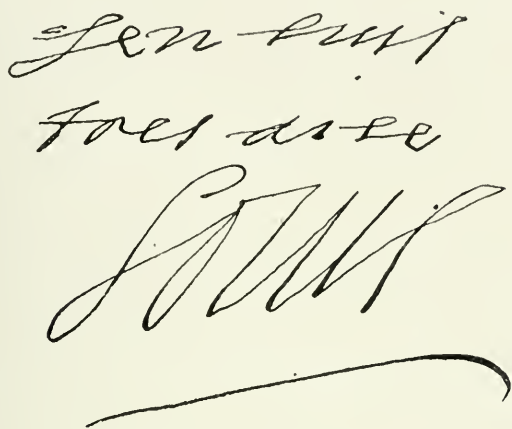 Jen suis
tres aise
Louis